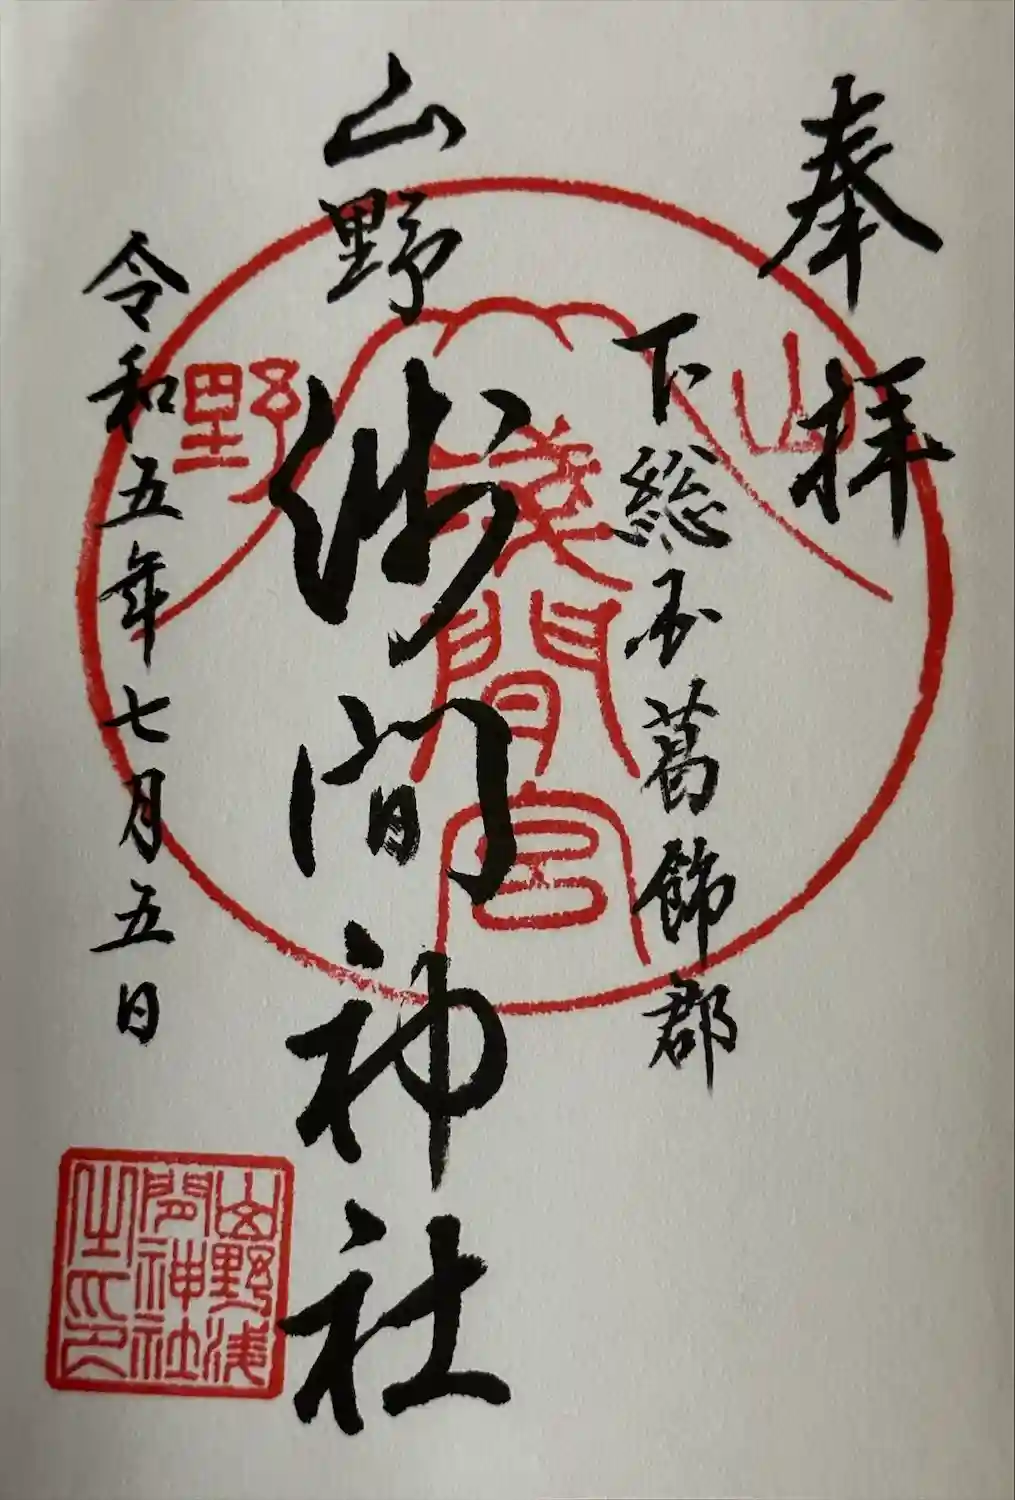 奉拝
下総国葛飾郡
山野浅間神社
令和五年七月五日
山野
淺間宮
山野浅
間神社
之印